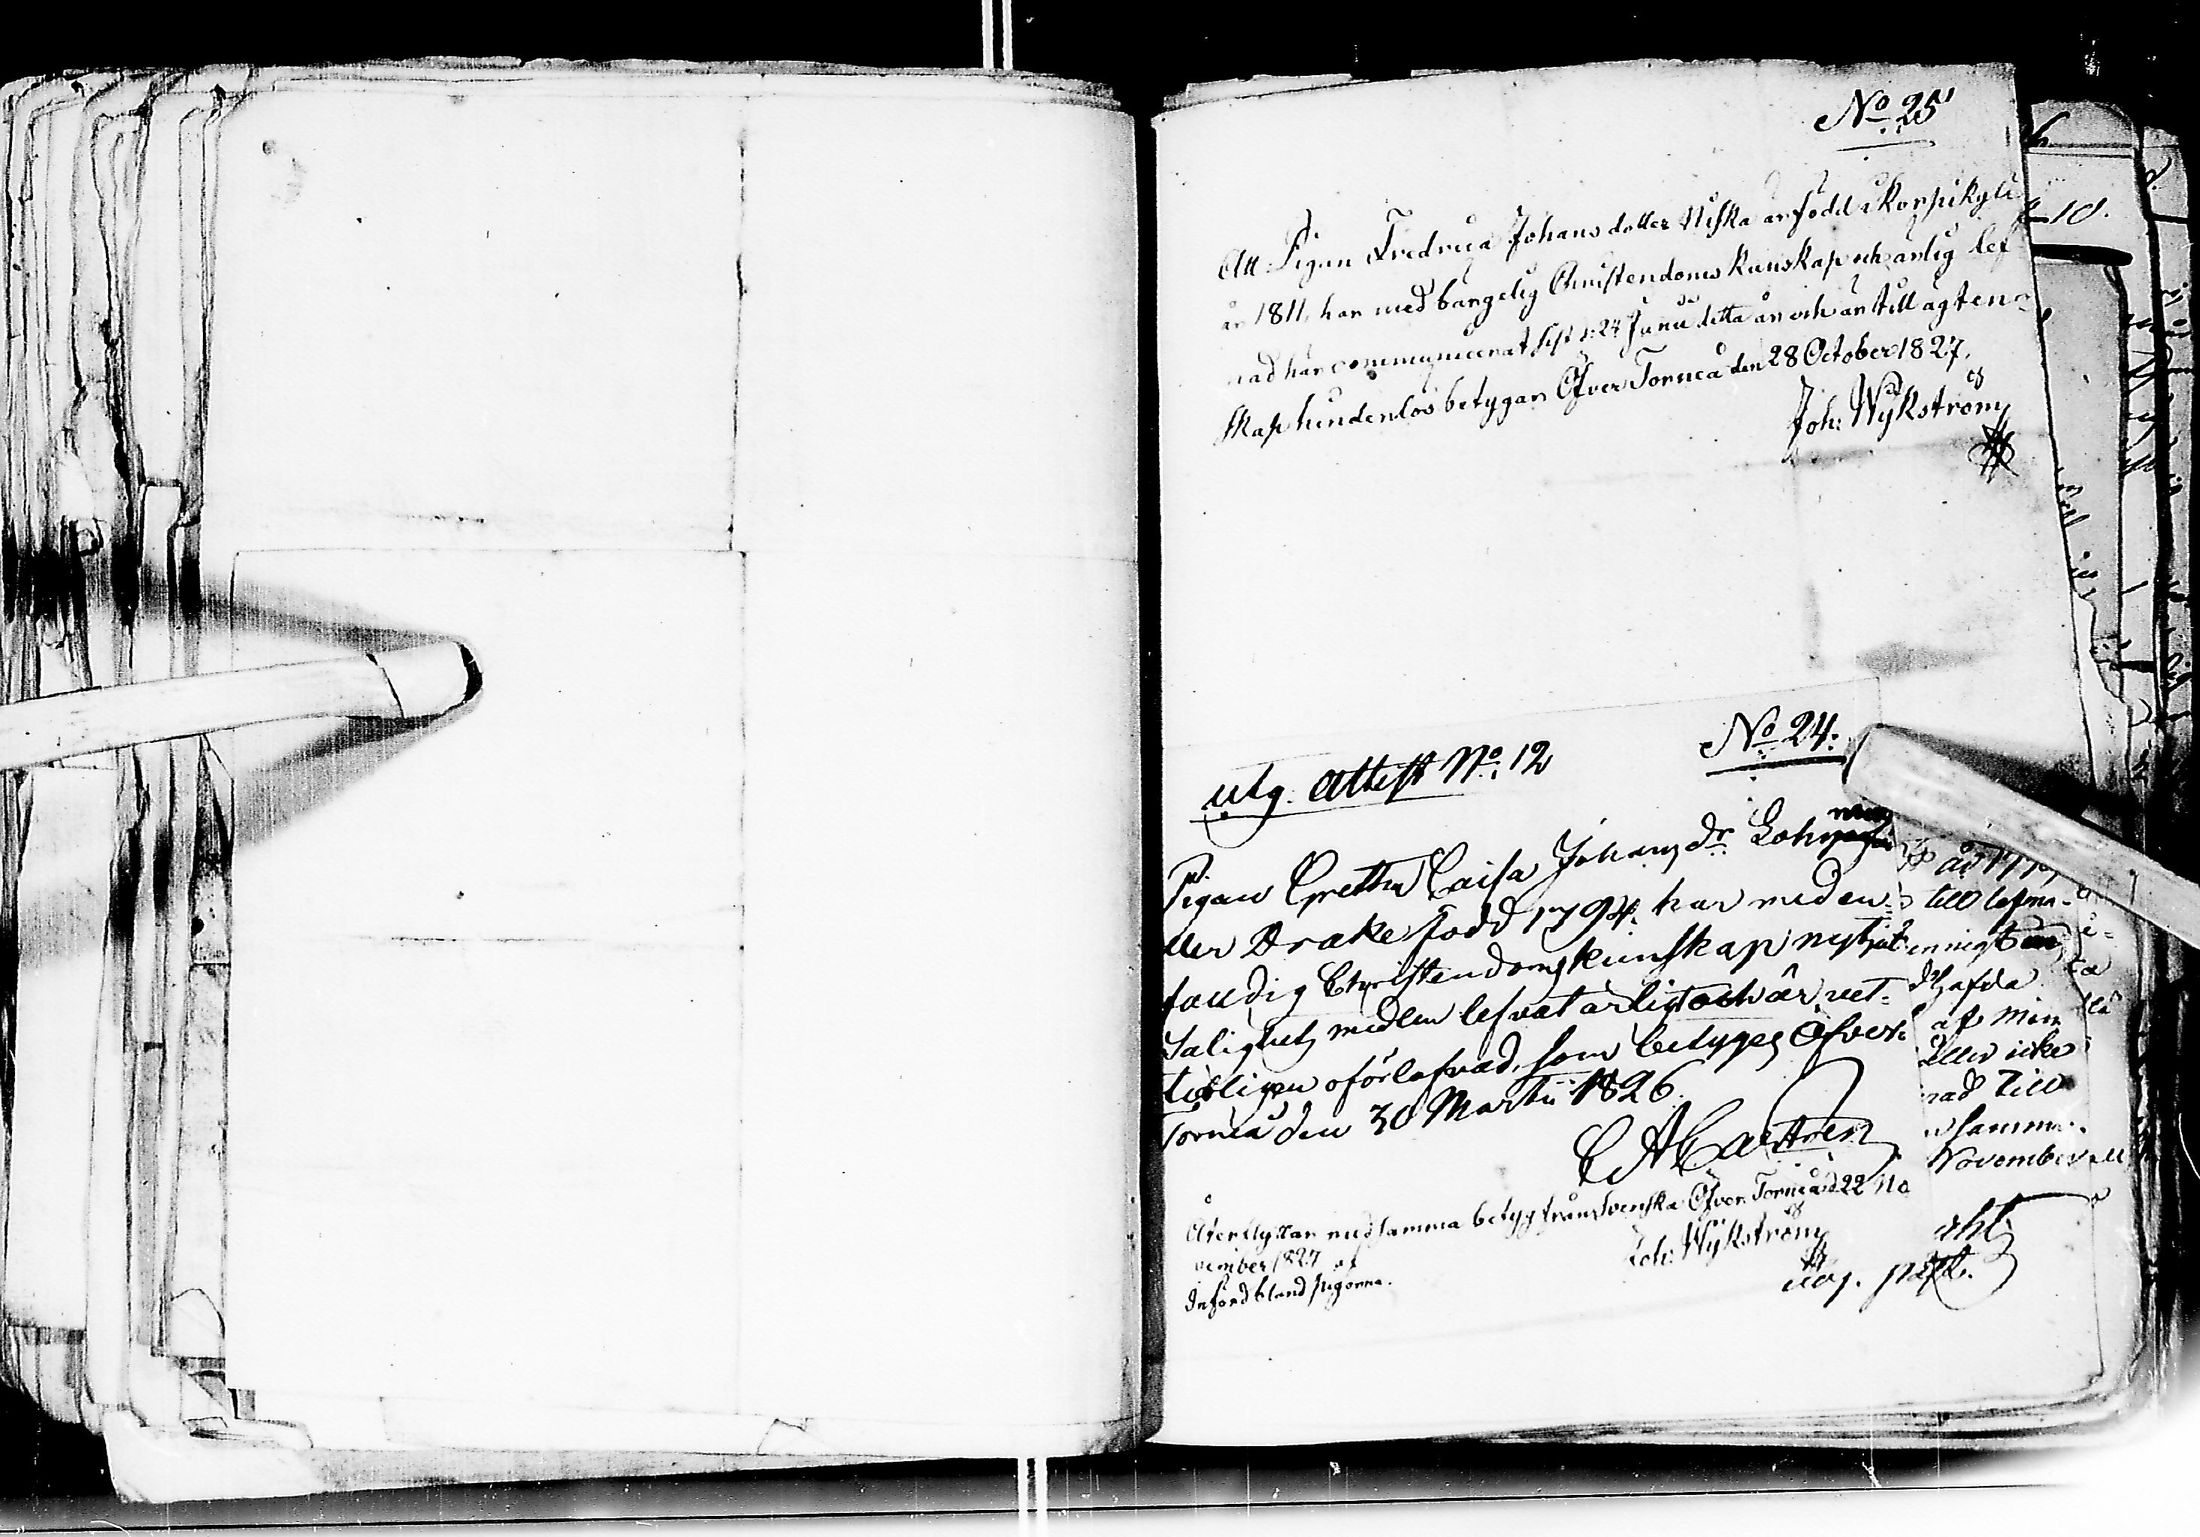 No 25
Att Pigan Fredrica Johansdotter Niska är född i Korpikylä
år 1811, har med bärgelig Christendoms kunskap och ärlig lef
nad här communicerat sist d: 24 Junii detta år och är till ägten-
skap hinderlös betygar Öfver Torneå den 28 October 1827.
Joh: Wykström
No 24.
utg. Attest No: 12
Pigan Gretha Caisa Johansdr.
eller Drake född 1794. har med en-
faldig Christendoms kunskap nytjat
Salighets medlen lefvat ärligt och är vet-
terligen oförlofvad, som betyges Öfver
Torneå den 30 Martii 1826.
C A Castrén
Återflyttar med samma betyg från Svenska Öfver Torneå d 22 No
vember 1827 af
Joh: Wykström
Införd bland pigorna.
till lefna-
af min
eller icke
nad till
samma
November